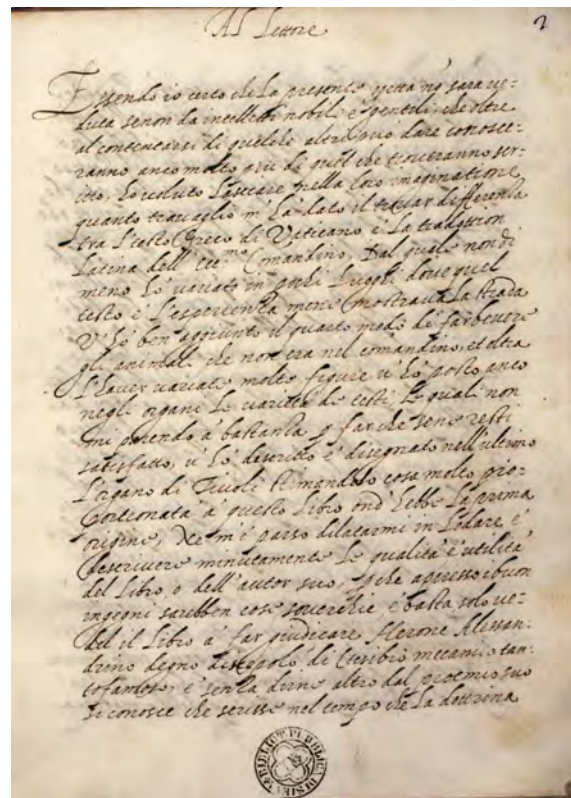 Al Lettore
2
Essendo io certo che la presente non sara ve:
duta senon da intelletti nobili è gentili, che oltre
al contentarsi di quel che altri può dare conosce:
ranno anco molto più di quel che troveranno scr:
itto, hò voluto lasciare nella loro imaginatione
quanto travaglio m'hà dato il trovar differenza
tra l'testo Greco di Vaticano è la tradottion
latina dell' Ecc.mo Comandino, dal quale non di
meno hò variato in pochi luoghi dove quel
testo è l'esperienza mene mostrava la strada
V'hò ben aggiunto il quarto modo di far bevere
gli animali che non era nel comandino, et oltra
l'haver variate molte figure v'hò posto anco
negli organi le varietà de testi, le quali non
mi parendo à bastanza p far che sene resti
satisfatto, v'hò descritto è disegnato nell'ultimo
l'organo di Tivoli stimandolo cosa molto pro:
portionata à questo libro ond'hebbe la prima
origine, Ne m'è parso dilatarmi in lodare è
descrivere minutamente le qualità è utilità
del libro, o dell'autor suo, pche appresso i buon
ingegni sarebben cose soverchie è basta solo ve:
der il libro à far giudicare Herone Alessan:
drino degno discepolo di Ctesibio mecanico tan:
to famoso, è senza dirne altro dal proemio suo
si conosce che scrisse nel tempo che la dottrina
BIBLIOT. PUBBLICA DI SIENA